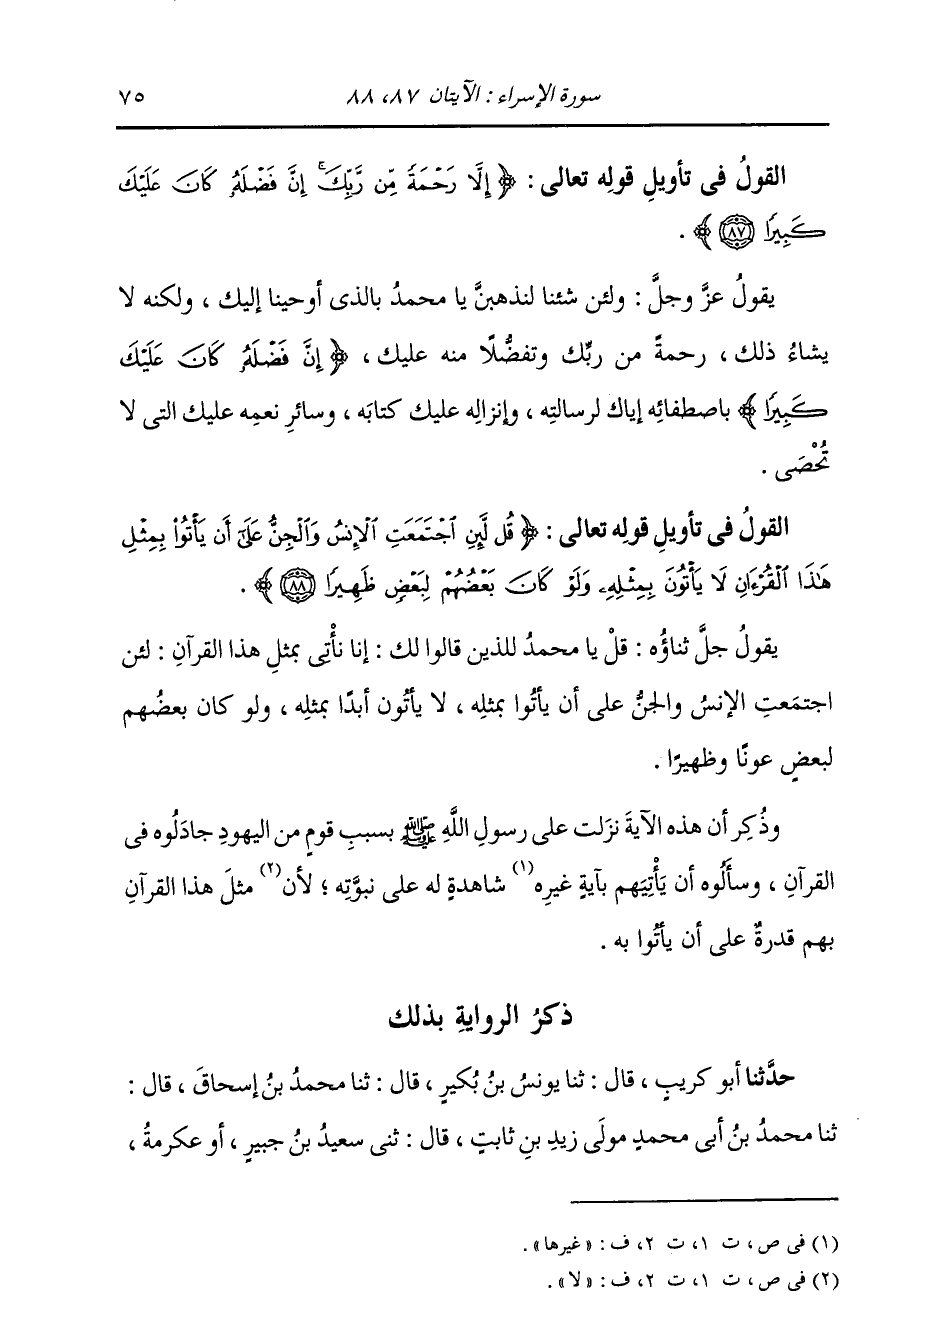 سورة الإسراء : الآيتان ٨٧، ٨٨ ٧٥
القولُ فى تأويلِ قولِه تعالى : ﴿ إِلَّا رَحْمَةً مِّن رَّبِّكَ ۚ إِنَّ فَضْلَهُ كَانَ عَلَيْكَ
كَبِيرًا ﴿٨٧﴾ ﴾ .
يقولُ عزَّ وجلَّ : ولئن شئنا لنذهبنَّ يا محمدُ بالذى أوحينا إليك ، ولكنه لا
يشاءُ ذلك ، رحمةً من ربِّك وتفضُّلًا منه عليك ، ﴿ إِنَّ فَضْلَهُ كَانَ عَلَيْكَ
كَبِيرًا ﴾ باصطفائِه إياك لرسالتِه ، وإنزالِه عليك كتابَه ، وسائرِ نعمِه عليك التى لا
تُحْصَى .
القولُ فى تأويلِ قولِه تعالى : ﴿ قُل لَّئِنِ اجْتَمَعَتِ الْإِنسُ وَالْجِنُّ عَلَىٰ أَن يَأْتُوا بِمِثْلِ
هَٰذَا الْقُرْءَانِ لَا يَأْتُونَ بِمِثْلِهِ وَلَوْ كَانَ بَعْضُهُمْ لِبَعْضٍ ظَهِيرًا ﴿٨٨﴾ ﴾ .
يقولُ جلَّ ثناؤُه : قلْ يا محمدُ للذين قالوا لك : إنا نأْتِى بمثلِ هذا القرآنِ : لئن
اجتمَعتِ الإنسُ والجنُّ على أن يأتُوا بمثلِه ، لا يأتُون أبدًا بمثلِه ، ولو كان بعضُهم
لبعضٍ عونًا وظهيرًا .
وذُكِر أن هذه الآيةَ نزَلت على رسولِ اللَّهِ ﷺ بسببِ قومٍ من اليهودِ جادَلُوه فى
القرآنِ ، وسأَلُوه أن يَأْتِيَهم بآيةٍ غيرِه(١) شاهدةٍ له على نبوَّتِه ؛ لأن(٢) مثلَ هذا القرآنِ
بهم قدرةٌ على أن يأتُوا به .
ذكرُ الروايةِ بذلك
حدَّثنا أبو كريبٍ ، قال : ثنا يونسُ بنُ بُكيرٍ ، قال : ثنا محمدُ بنُ إسحاقَ ، قال :
ثنا محمدُ بنُ أبى محمدٍ مولَى زيدِ بنِ ثابتٍ ، قال : ثنى سعيدُ بنُ جبيرٍ ، أو عكرمةُ ،
(١) فى ص، ت ١، ت ٢، ف : « غيرها » .
(٢) فى ص، ت ١، ت ٢، ف : « لا » .